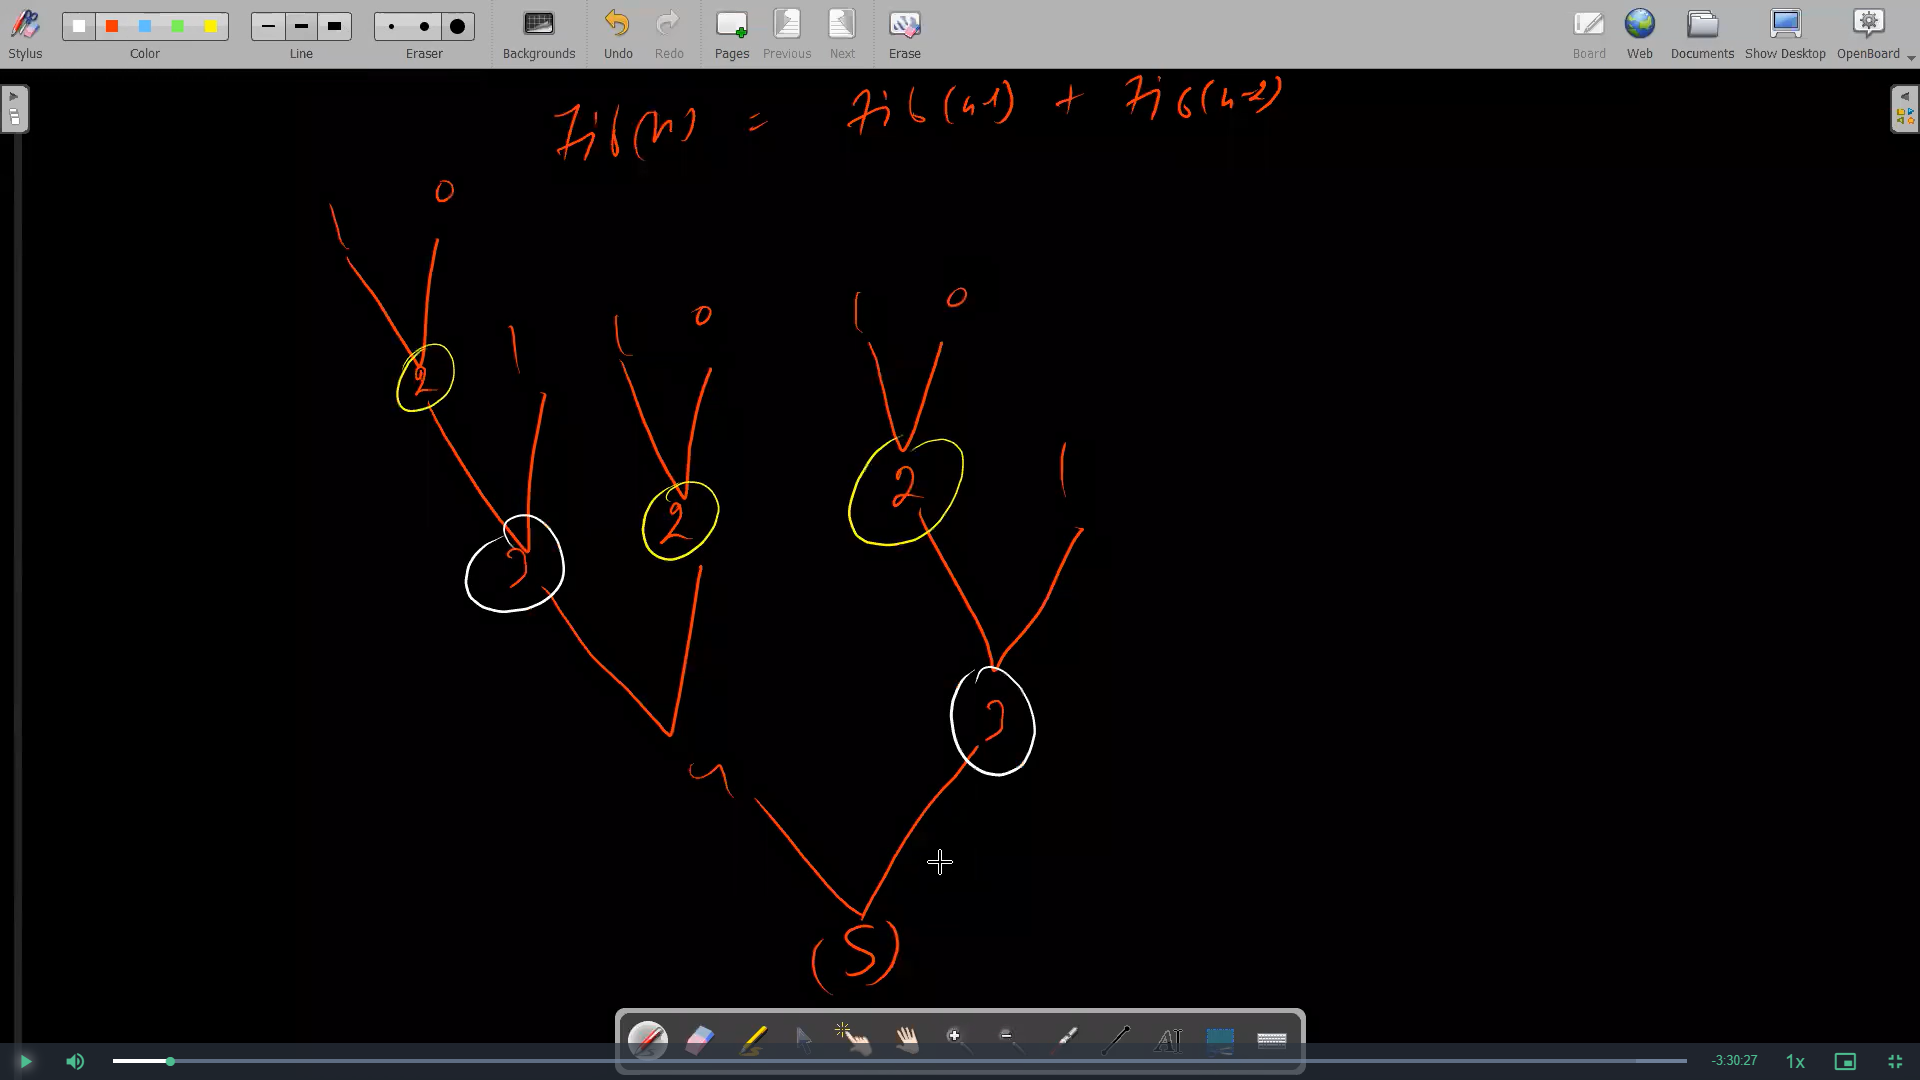 Stylus Color Line Eraser Backgrounds Undo Redo Pages Previous Next Erase Board Web Documents Show Desktop OpenBoard
Fib(n) = Fib(n-1) + Fib(n-2)
0
1
1 0
1 0
1
2
1
2
2
3
3
4
(5)
-3:30:27 1x